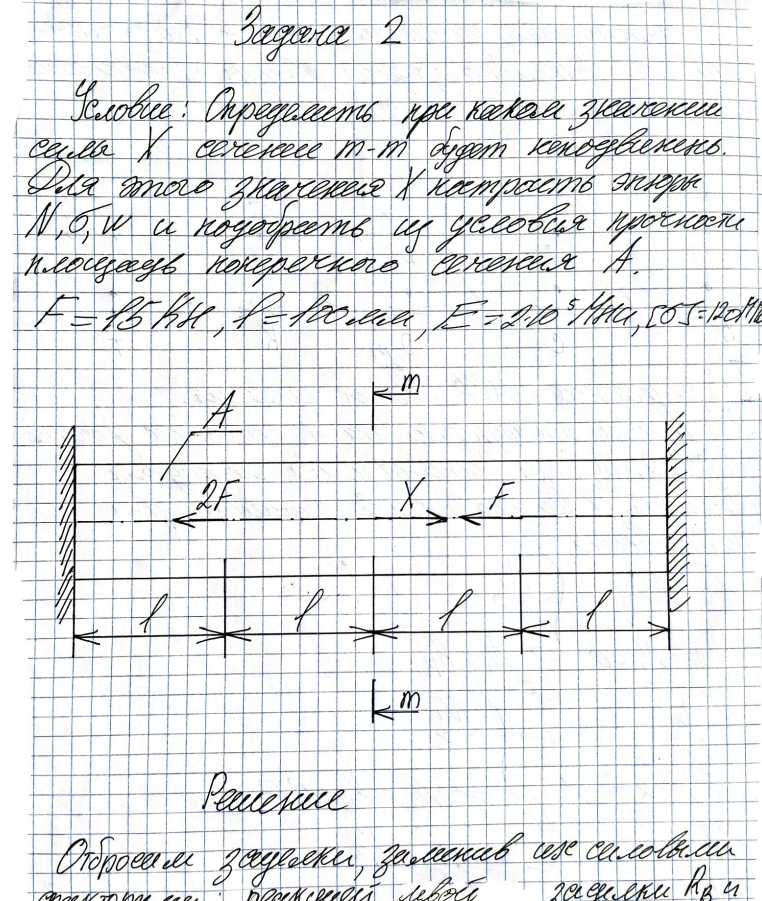 Задача 2
Условие: Определить при каком значении
силы X сечение m-m будет неподвижень.
Для этого значения X построить эпюры
N, σ, w и подобрать из условия прочности
площадь поперечного сечения A.
F = 15 КН, l = 100 мм, E = 2·10⁵ МПа, [σ] = 120 МПа
m
A
2F X F
l l l l
m
Решение
Отбросим заделки, заменив их силовыми
реакцией левой заделки R_B и